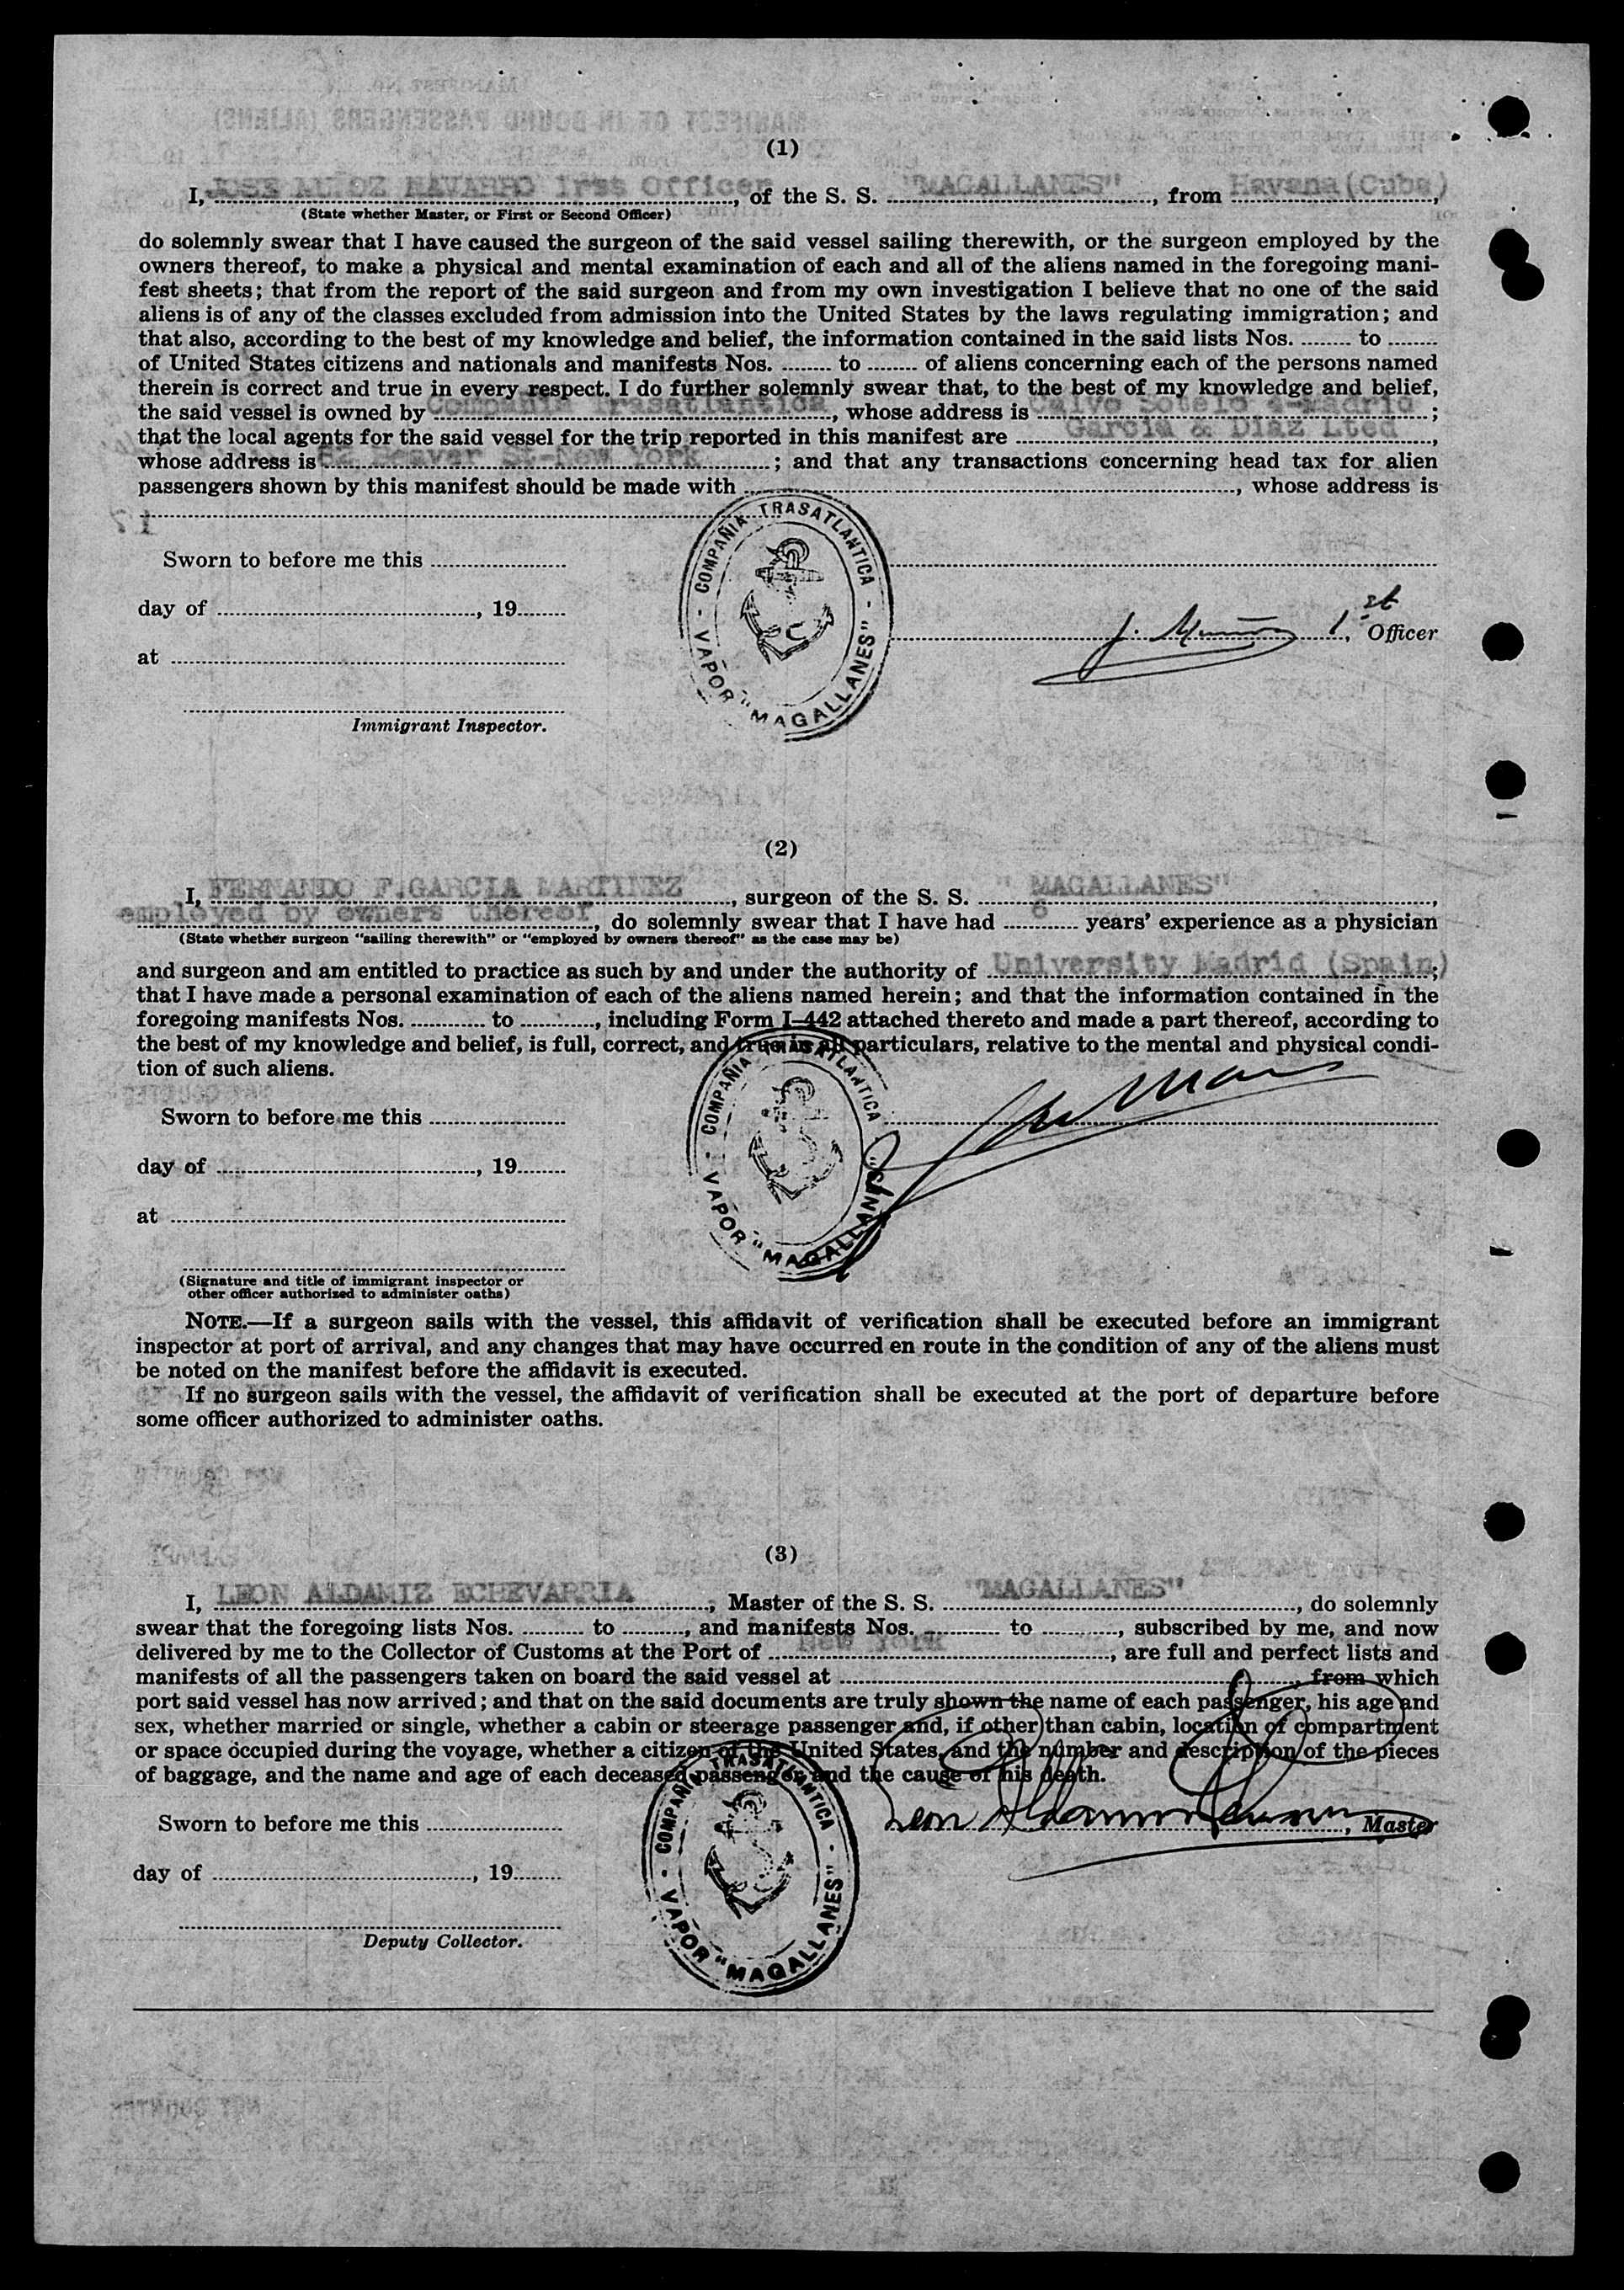 (1)
I, JOSE MUÑOZ NAVARRO 1rst Officer, of the S. S. "MAGALLANES", from Havana (Cuba),
(State whether Master, or First or Second Officer)
do solemnly swear that I have caused the surgeon of the said vessel sailing therewith, or the surgeon employed by the
owners thereof, to make a physical and mental examination of each and all of the aliens named in the foregoing mani-
fest sheets; that from the report of the said surgeon and from my own investigation I believe that no one of the said
aliens is of any of the classes excluded from admission into the United States by the laws regulating immigration; and
that also, according to the best of my knowledge and belief, the information contained in the said lists Nos. ........ to ........
of United States citizens and nationals and manifests Nos. ........ to ........ of aliens concerning each of the persons named
therein is correct and true in every respect. I do further solemnly swear that, to the best of my knowledge and belief,
the said vessel is owned by Compañia Trasatlantica, whose address is Calvo Sotelo 4-Madrid;
that the local agents for the said vessel for the trip reported in this manifest are Garcia & Diaz Lted,
whose address is 82 Beaver St-New York; and that any transactions concerning head tax for alien
passengers shown by this manifest should be made with ........, whose address is
17
COMPAÑIA TRASATLANTICA - VAPOR "MAGALLANES" -
Sworn to before me this ........
day of ........, 19........
J. Muñoz 1st, Officer
at ........
Immigrant Inspector.
(2)
I, FERNANDO F.GARCIA MARTINEZ, surgeon of the S. S. "MAGALLANES",
employed by owners thereof, do solemnly swear that I have had 6 years' experience as a physician
(State whether surgeon "sailing therewith" or "employed by owners thereof" as the case may be)
and surgeon and am entitled to practice as such by and under the authority of University Madrid (Spain);
that I have made a personal examination of each of the aliens named herein; and that the information contained in the
foregoing manifests Nos. ........ to ........, including Form I-442 attached thereto and made a part thereof, according to
the best of my knowledge and belief, is full, correct, and true in all particulars, relative to the mental and physical condi-
tion of such aliens.
COMPAÑIA TRASATLANTICA - VAPOR "MAGALLANES" -
Sworn to before me this ........
day of ........, 19........
at ........
(Signature and title of immigrant inspector or
other officer authorized to administer oaths)
NOTE.—If a surgeon sails with the vessel, this affidavit of verification shall be executed before an immigrant
inspector at port of arrival, and any changes that may have occurred en route in the condition of any of the aliens must
be noted on the manifest before the affidavit is executed.
If no surgeon sails with the vessel, the affidavit of verification shall be executed at the port of departure before
some officer authorized to administer oaths.
(3)
I, LEON ALDAMIZ ECHEVARRIA, Master of the S. S. "MAGALLANES", do solemnly
swear that the foregoing lists Nos. ........ to ........, and manifests Nos. ........ to ........, subscribed by me, and now
delivered by me to the Collector of Customs at the Port of New York, are full and perfect lists and
manifests of all the passengers taken on board the said vessel at ........, from which
port said vessel has now arrived; and that on the said documents are truly shown the name of each passenger, his age and
sex, whether married or single, whether a cabin or steerage passenger and, if other than cabin, location of compartment
or space occupied during the voyage, whether a citizen of the United States, and the number and description of the pieces
of baggage, and the name and age of each deceased passenger and the cause of his death.
COMPAÑIA TRASATLANTICA - VAPOR "MAGALLANES" -
Sworn to before me this ........
Leon Aldamiz, Master
day of ........, 19........
Deputy Collector.